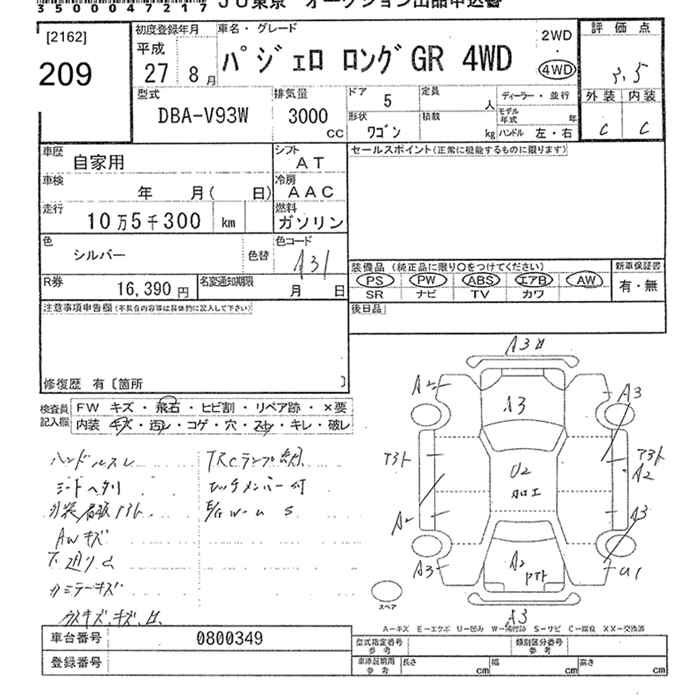 35000847217 JU東京 オークション出品申込書
[2162]
209
初度登録年月
平成
27年 8月
車名・グレード
パジェロ ロングGR 4WD
2WD
・
4WD
評価点
3.5
外装 内装
C C
型式
DBA-V93W
排気量
3000
CC
ドア
5
定員
人
ディーラー・並行
モデル年式 年
形状
ワゴン
積数
kg
ハンドル 左・右
車歴
自家用
シフト
AT
車検
年 月( 日)
冷房
AAC
走行
10万5千300 km
燃料
ガソリン
色
シルバー
色替
色コード
A31
R券
16,390 円
名変通知期限
月 日
セールスポイント(正常に機能するものに限ります)
装備品 (純正品に限り○をつけてください)
PS PW ABS エアB AW
SR ナビ TV カワ
新車保証書
有・無
後日品
注意事項申告欄(不具合内容等は具体的に記入して下さい)
修復歴 有〔箇所 〕
検査員記入欄
FW キズ・飛石・ヒビ割・リペア跡・×要
内装 キズ・汚レ・コゲ・穴・スレ・キレ・破レ
ハンドルスレ
シートヘタリ
AWキズ
下廻りサビ
TRCランプ点灯
A3
A3
A2
A3
A2
A2
U2
加工
A3
A2
A3
U1
A3
スペア
A-キズ E-エクボ U-凹み W-補修跡 S-サビ C-腐食 XX-交換済
車台番号
0800349
登録番号
型式指定番号
参考
類別区分番号
参考
車庫証明用
参考
長さ cm
幅 cm
高さ cm